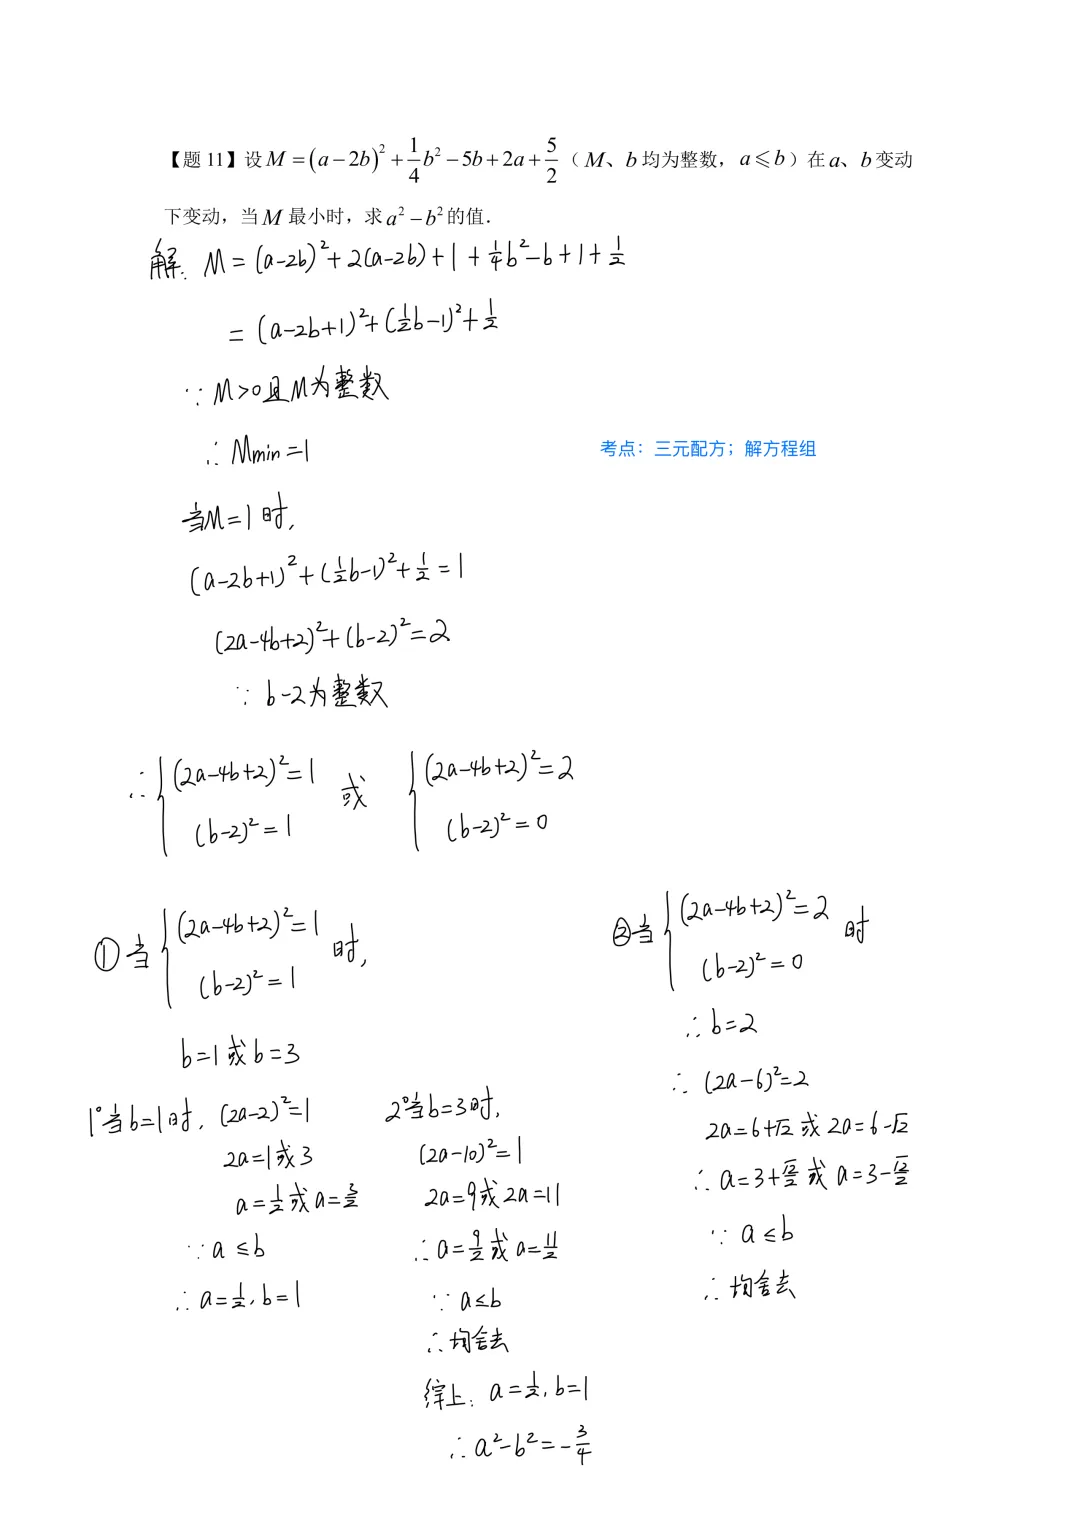 【题 11】设 M = (a − 2b)² + 1/4 b² − 5b + 2a + 5/2（M、b 均为整数，a ⩽ b）在 a、b 变动
下变动，当 M 最小时，求 a² − b² 的值．
解: M = (a-2b)² + 2(a-2b) + 1 + 1/4 b² - b + 1 + 1/2
= (a-2b+1)² + (1/2 b-1)² + 1/2
∵ M>0且M为整数
∴ Mmin = 1
考点：三元配方；解方程组
当M=1时,
(a-2b+1)² + (1/2 b-1)² + 1/2 = 1
(2a-4b+2)² + (b-2)² = 2
∵ b-2为整数
∴ { (2a-4b+2)² = 1
(b-2)² = 1
或
{ (2a-4b+2)² = 2
(b-2)² = 0
①当 { (2a-4b+2)² = 1
(b-2)² = 1
时,
b=1或b=3
1°当b=1时, (2a-2)²=1
2a=1或3
a=1/2或a=3/2
∵ a≤b
∴ a=1/2, b=1
2°当b=3时,
(2a-10)²=1
2a=9或2a=11
∴ a=9/2或a=11/2
∵ a≤b
∴ 均舍去
②当 { (2a-4b+2)² = 2
(b-2)² = 0
时
∴ b=2
∴ (2a-6)²=2
2a=6+√2或2a=6-√2
∴ a=3+√2/2或a=3-√2/2
∵ a≤b
∴ 均舍去
综上: a=1/2, b=1
∴ a²-b²=-3/4